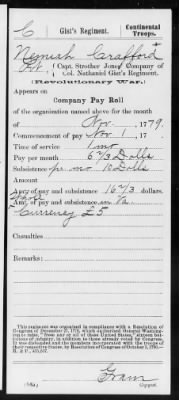 C
Gist's Regiment.
Continental
Troops.
Nemiah Crafford
Pvt.
Capt. Strother Jones' Company of
Col. Nathaniel Gist's Regiment.
(Revolutionary War.)
Appears on
Company Pay Roll
of the organization named above for the month
of Nov., 1779.
Commencement of pay Nov 1, 17
Time of service 1 mo
Pay per month 6 2/3 Dolls
Subsistence pr. mo 10 Dolls
Amount
Am't of pay and subsistence 16 2/3 dollars.
Whole
Amt. of pay and subsistence in Va.
Currency £5
Casualties
Remarks:
This regiment was organized in compliance with a Resolution of
Congress of December 27, 1776, which authorized General Washing-
ton to raise, "from any or all of these United States," sixteen bat-
talions of infantry, in addition to those already voted by Congress.
It was disbanded and the members incorporated with the troops of
their respective States, by Resolution of Congress of October 3, 1780.—
R. & P., 436,647.
Copyist.